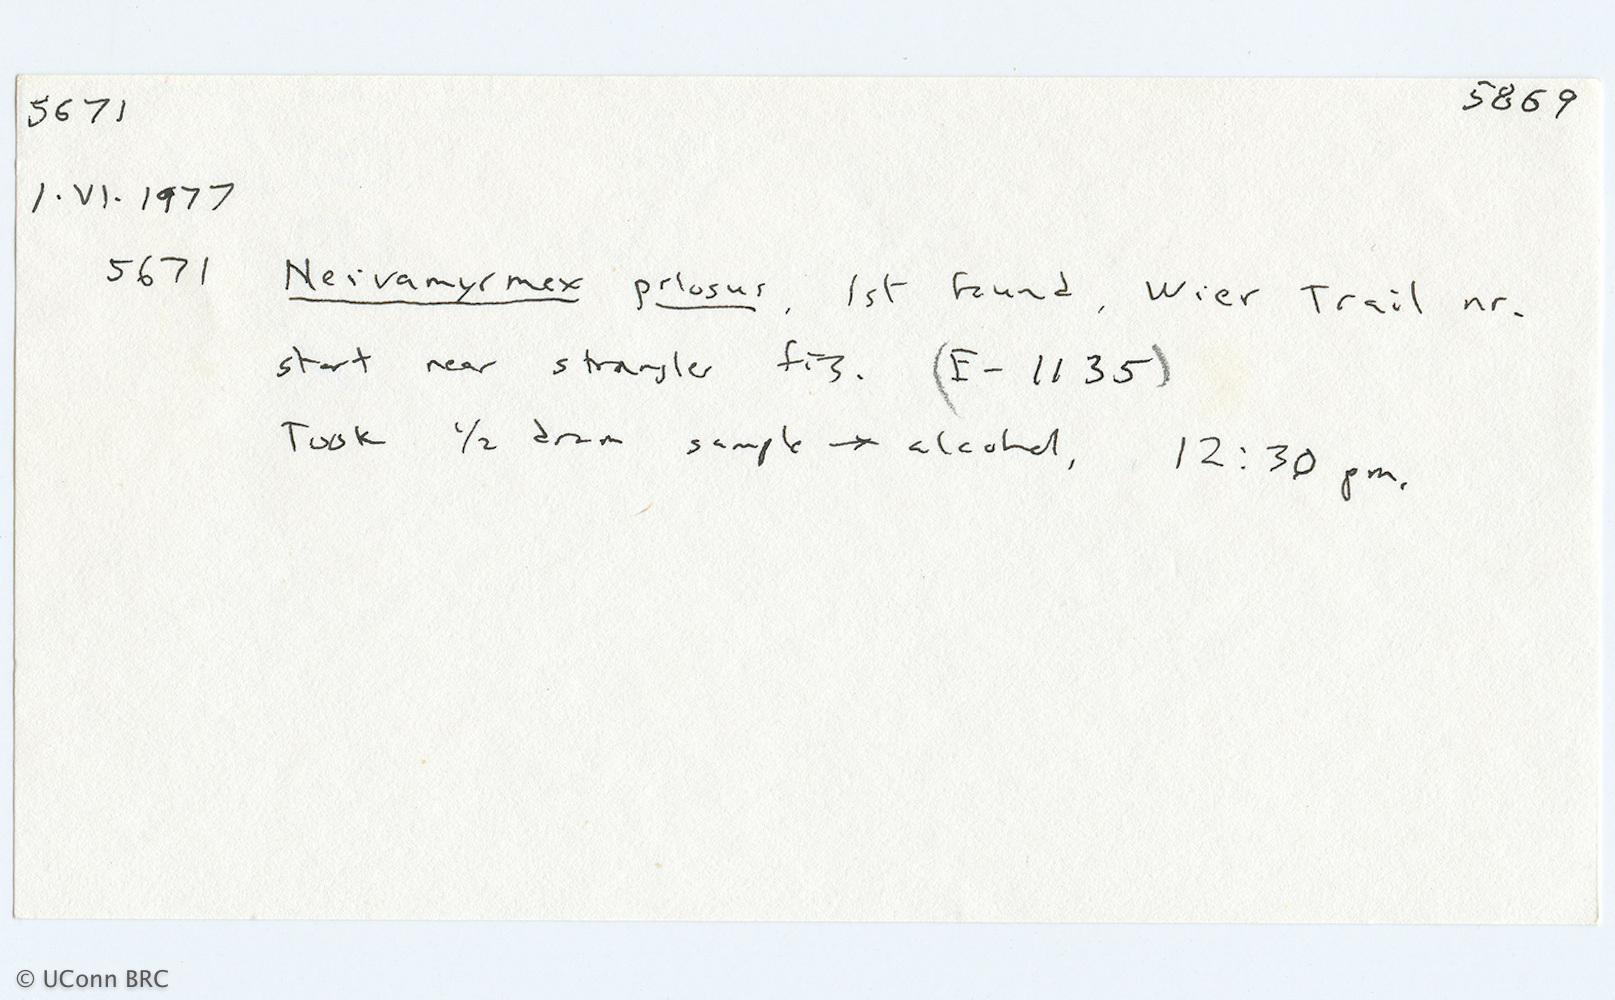 5671 5869
1.VI.1977
5671 Neivamyrmex pilosus, 1st found, Wier Trail nr.
start near strangler fig. (E-1135)
Took 1/2 dram sample → alcohol, 12:30 pm.
© UConn BRC